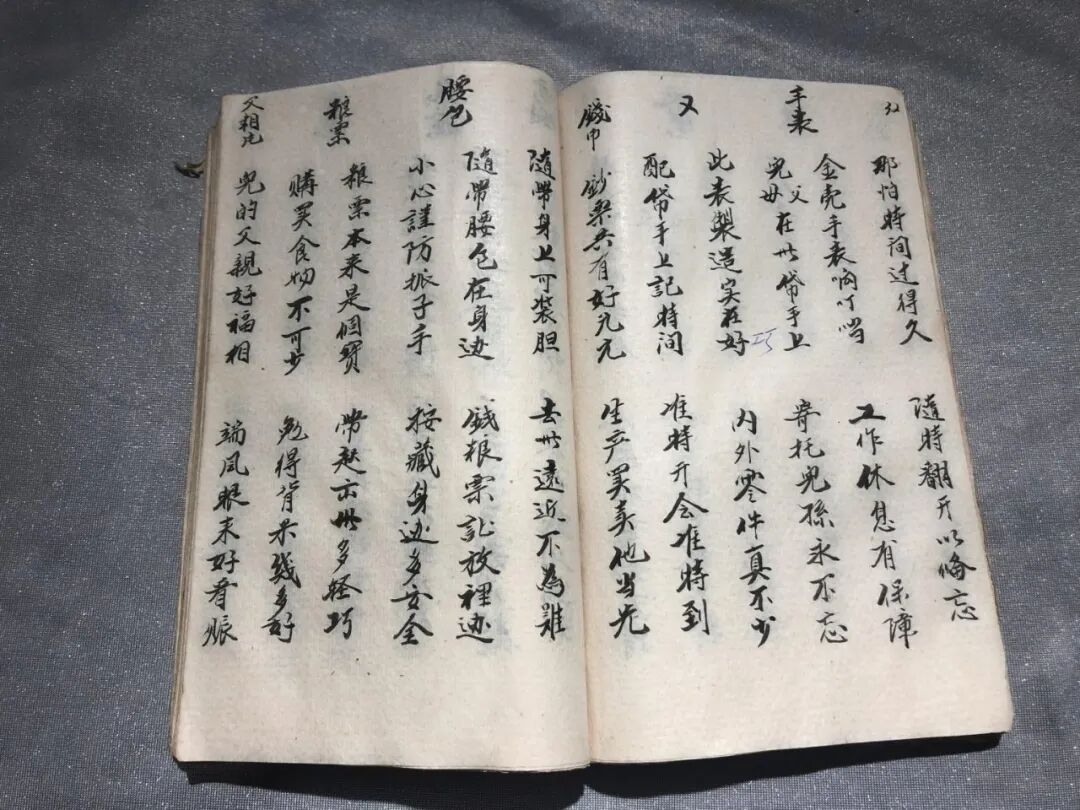 那怕時间过得久
隨時翻开以俻忘
手表
金壳手表响叮噹
工作休息有保障
兒父母在此帒手上
寄托兒孫永不忘
此表製造实在好
巧
内外零件真不少
又
配帒手上記時间
准時开会准時到
錢巾
鈔票共有好元
生产買卖他当先
隨帶身上可装胆
去此遠近不為難
腰包
隨帶腰包在身边
钱粮票放裡边
小心謹防扳子手
按藏身边多安全
粮票
粮票本来是個寶
帶起出多轻巧
購買食物不可少
免得背米幾多好
父相片
兒的父親好福相
端凤眼来好看賬